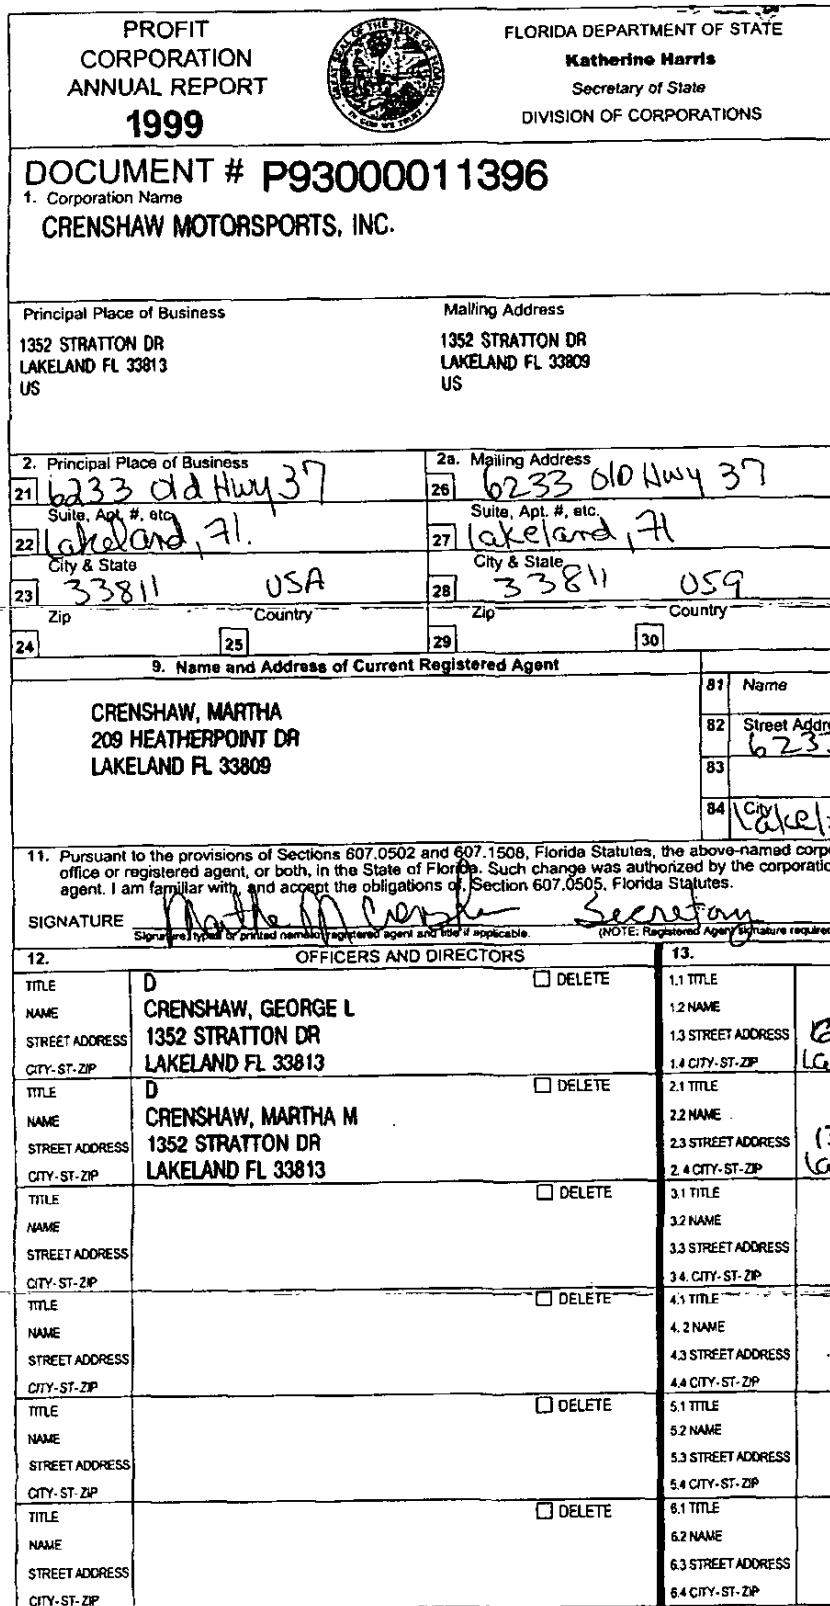 PROFIT
CORPORATION
ANNUAL REPORT
1999
GREAT SEAL OF THE STATE OF FLORIDA
IN GOD WE TRUST
FLORIDA DEPARTMENT OF STATE
Katherine Harris
Secretary of State
DIVISION OF CORPORATIONS
DOCUMENT # P93000011396
1. Corporation Name
CRENSHAW MOTORSPORTS, INC.
Principal Place of Business
1352 STRATTON DR
LAKELAND FL 33813
US
Mailing Address
1352 STRATTON DR
LAKELAND FL 33809
US
2. Principal Place of Business
21 6233 Old Hwy 37
Suite, Apt. #, etc.
22 Lakeland, Fl.
City & State
23 33811 USA
Zip Country
24 25
2a. Mailing Address
26 6233 Old Hwy 37
Suite, Apt. #, etc.
27 Lakeland, Fl
City & State
28 33811 USA
Zip Country
29 30
9. Name and Address of Current Registered Agent
CRENSHAW, MARTHA
209 HEATHERPOINT DR
LAKELAND FL 33809
81 Name
82 Street Addre
623
83
84 City
Lakel
11. Pursuant to the provisions of Sections 607.0502 and 607.1508, Florida Statutes, the above-named corpo
office or registered agent, or both, in the State of Florida. Such change was authorized by the corporatio
agent. I am familiar with, and accept the obligations of, Section 607.0505, Florida Statutes.
SIGNATURE Martha M Crenshaw Secretary
Signature, typed or printed name of registered agent and title if applicable. (NOTE: Registered Agent signature required
12. OFFICERS AND DIRECTORS 13.
TITLE D DELETE
NAME CRENSHAW, GEORGE L
STREET ADDRESS 1352 STRATTON DR
CITY-ST-ZIP LAKELAND FL 33813
1.1 TITLE
1.2 NAME
1.3 STREET ADDRESS
1.4 CITY-ST-ZIP La
TITLE D DELETE
NAME CRENSHAW, MARTHA M
STREET ADDRESS 1352 STRATTON DR
CITY-ST-ZIP LAKELAND FL 33813
2.1 TITLE
2.2 NAME
2.3 STREET ADDRESS
2.4 CITY-ST-ZIP La
TITLE DELETE
NAME
STREET ADDRESS
CITY-ST-ZIP
3.1 TITLE
3.2 NAME
3.3 STREET ADDRESS
3.4. CITY-ST-ZIP
TITLE DELETE
NAME
STREET ADDRESS
CITY-ST-ZIP
4.1 TITLE
4.2 NAME
4.3 STREET ADDRESS
4.4 CITY-ST-ZIP
TITLE DELETE
NAME
STREET ADDRESS
CITY-ST-ZIP
5.1 TITLE
5.2 NAME
5.3 STREET ADDRESS
5.4 CITY-ST-ZIP
TITLE DELETE
NAME
STREET ADDRESS
CITY-ST-ZIP
6.1 TITLE
6.2 NAME
6.3 STREET ADDRESS
6.4 CITY-ST-ZIP